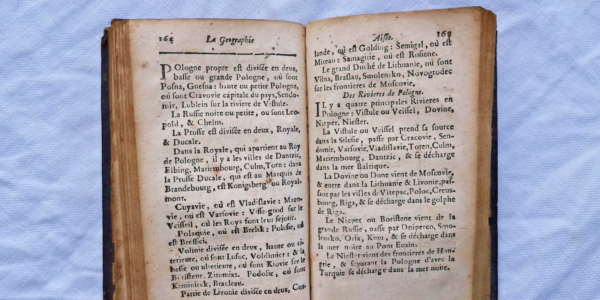 164 La Geographie
POlogne propre est divisée en deux,
basse ou grande Pologne, où sont
Posna, Gnesna: haute ou petite Pologne,
où sont Cravovie capitale du pays, Sendo-
mir, Lublein sur la riviere de Vistule.
La Russie noire ou petite, où sont Leo-
pold, & Chelm.
La Prusse est divisée en deux, Royale,
& Ducale.
Dans la Royale, qui appartient au Roy
de Pologne, il y a les villes de Dantzic,
Elbing, Mariembourg, Culm, Torn: dans
la Prusse Ducale, qui est au Marquis de
Brandebourg, est Konigsberg ou Royal-
mont.
Cujavie, où est Vladislavie: Mazo-
vie, où est Varsovie: Visse-grod sur le
Veissel, où les Roys sont leur sejour.
Polaquie, où est Breslik: Polesie, où
est Bressici.
Volinie divisée en deux, haute ou ci-
terieure, où sont Lusuc, Voldimier: &
basse ou ulterieure, où sont Kiovie sur le
Boristene, Zitomirs. Podolie, où sont
Kaminieck, Braclau.
Partie de Livonie divisée en deux, Cur-
Aisie. 169
lande, où est Golding: Semigal, où est
Mittau: Samagitie, où est Rosiene.
Le grand Duché de Lithuanie, où sont
Vilna, Braslau, Smolensko, Novogrodec
sur les frontieres de Moscovie.
Des Rivieres de Pologne.
IL y a quatre principales Rivieres en
Pologne: Vistule ou Veissel, Dovine,
Nieper, Niester.
La Vistule ou Veissel prend sa source
dans la Silesie, passe par Cracovie, Sen-
domir, Varsovie, Vladislavie, Toren, Culm,
Mariembourg, Dantzic, & se décharge
dans la mer Baltique.
La Dovine ou Dune vient de Moscovie,
& entre dans la Lithuanie & Livonie, pas-
sant par les villes de Vitepsc, Poloc, Creuz-
bourg, Riga, & se décharge dans le golphe
de Riga.
Le Nieper ou Boristene vient de la
grande Russie, passe par Dniperco, Smo-
lensko, Orsa, Kiau, & se décharge dans la
mer noire au Pont Euxin.
Le Niester vient des frontieres de Hon-
grie, & separant la Pologne d'avec la
Turquie se décharge dans la mer noire.